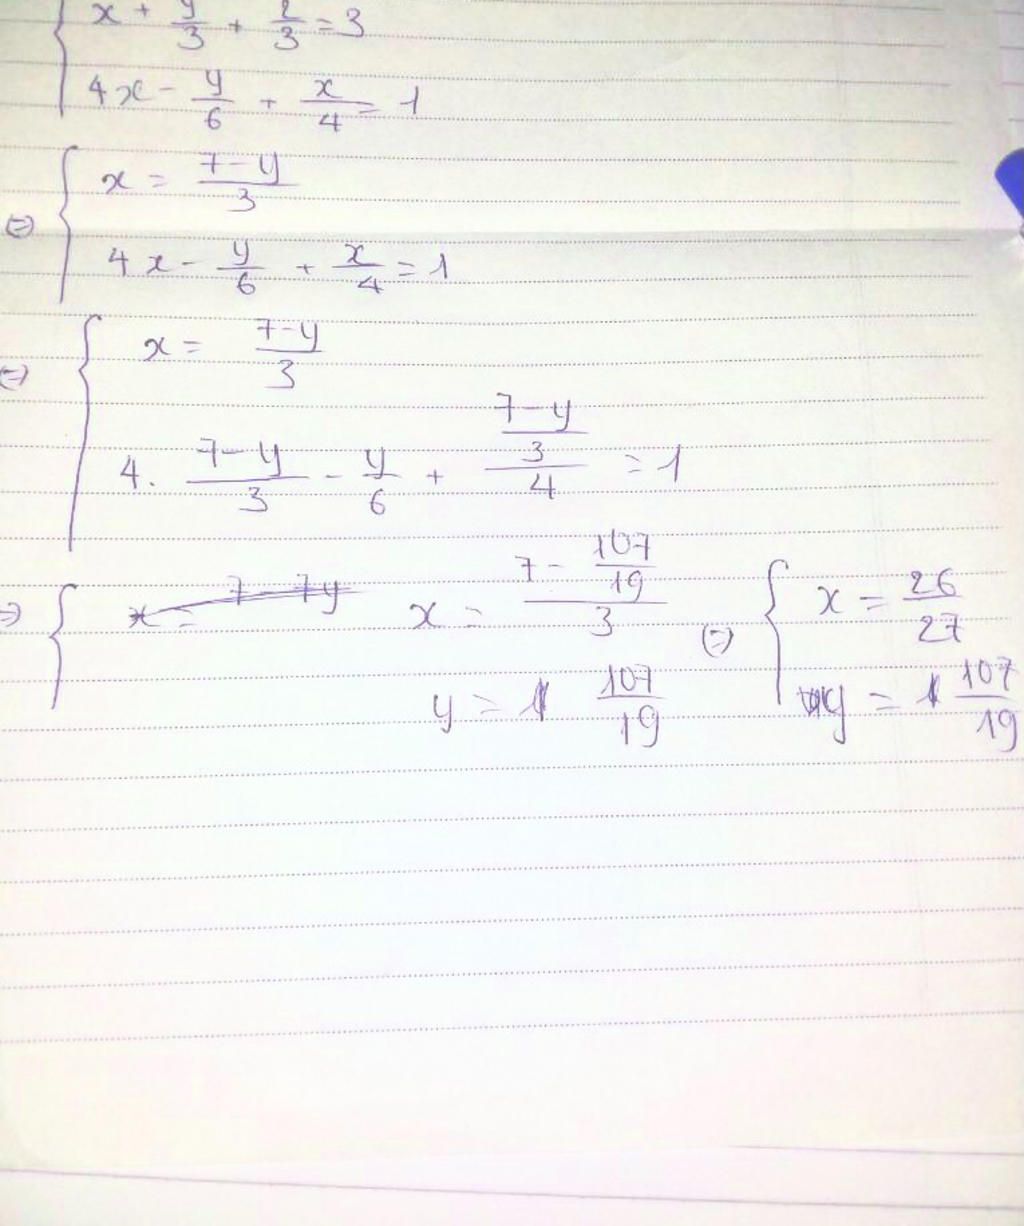 x + y/3 + 2/3 = 3
4x - y/6 + x/4 = 1
x = (7-y)/3
⇔
4x - y/6 + x/4 = 1
x = (7-y)/3
⇔
4. (7-y)/3 - y/6 + ((7-y)/3)/4 = 1
⇔ x = 7-7y x = (7 - 107/19)/3 ⇔ x = 26/27
y = 107/19 y = 107/19